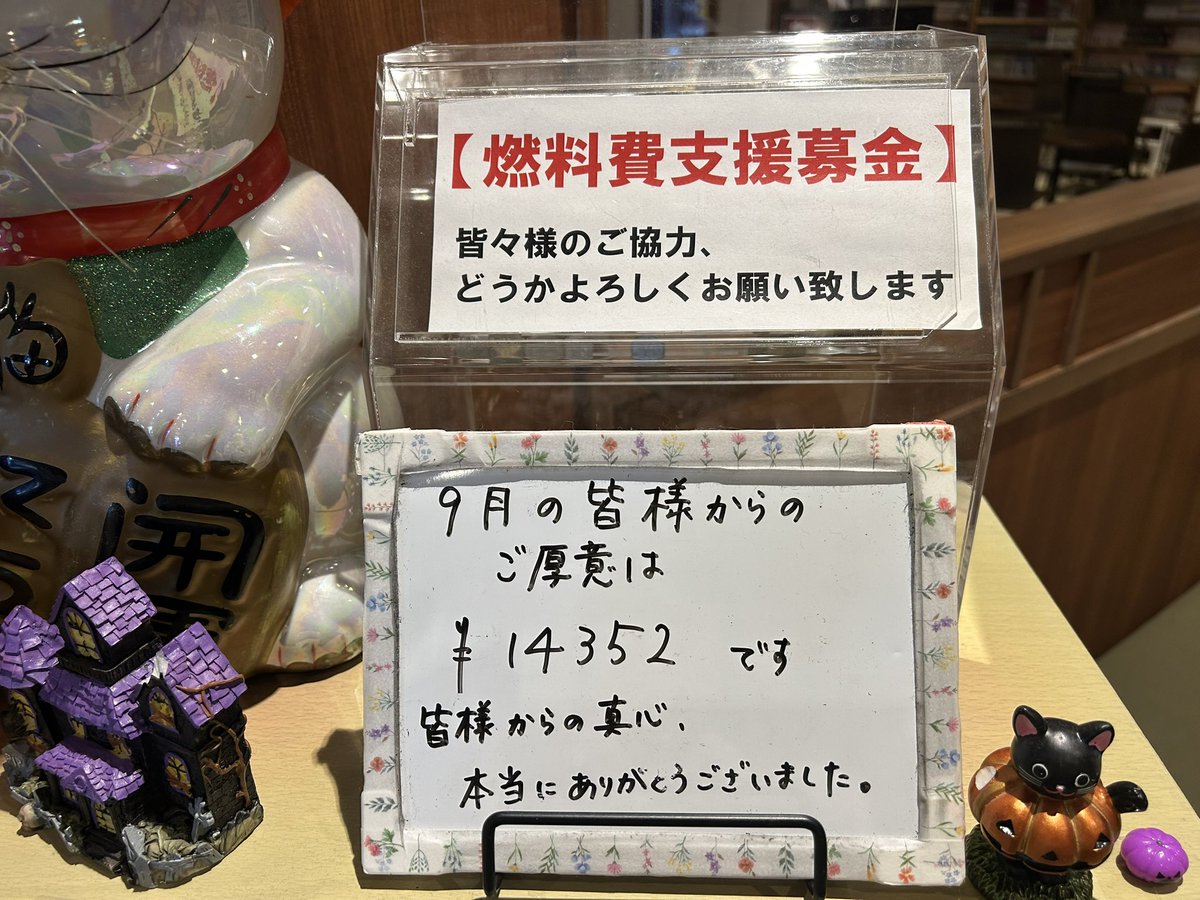 【燃料費支援募金】
皆々様のご協力、
どうかよろしくお願い致します
9月の皆様からの
ご厚意は
¥14352 です
皆様からの真心、
本当にありがとうございました。
開